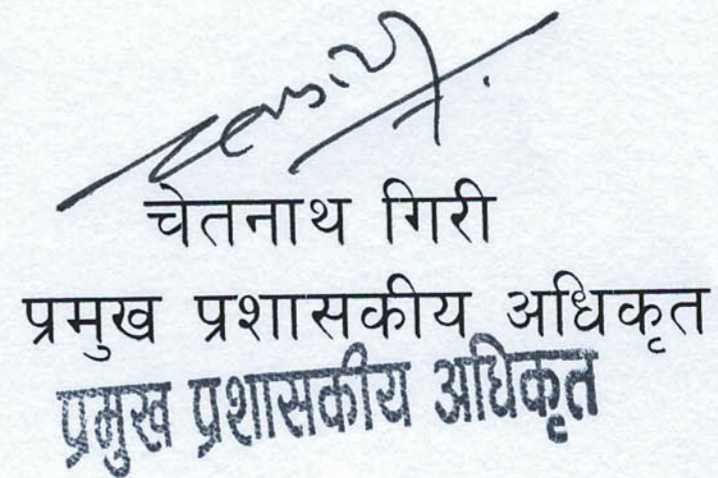 चेतनाथ गिरी
प्रमुख प्रशासकीय अधिकृत
प्रमुख प्रशासकीय अधिकृत